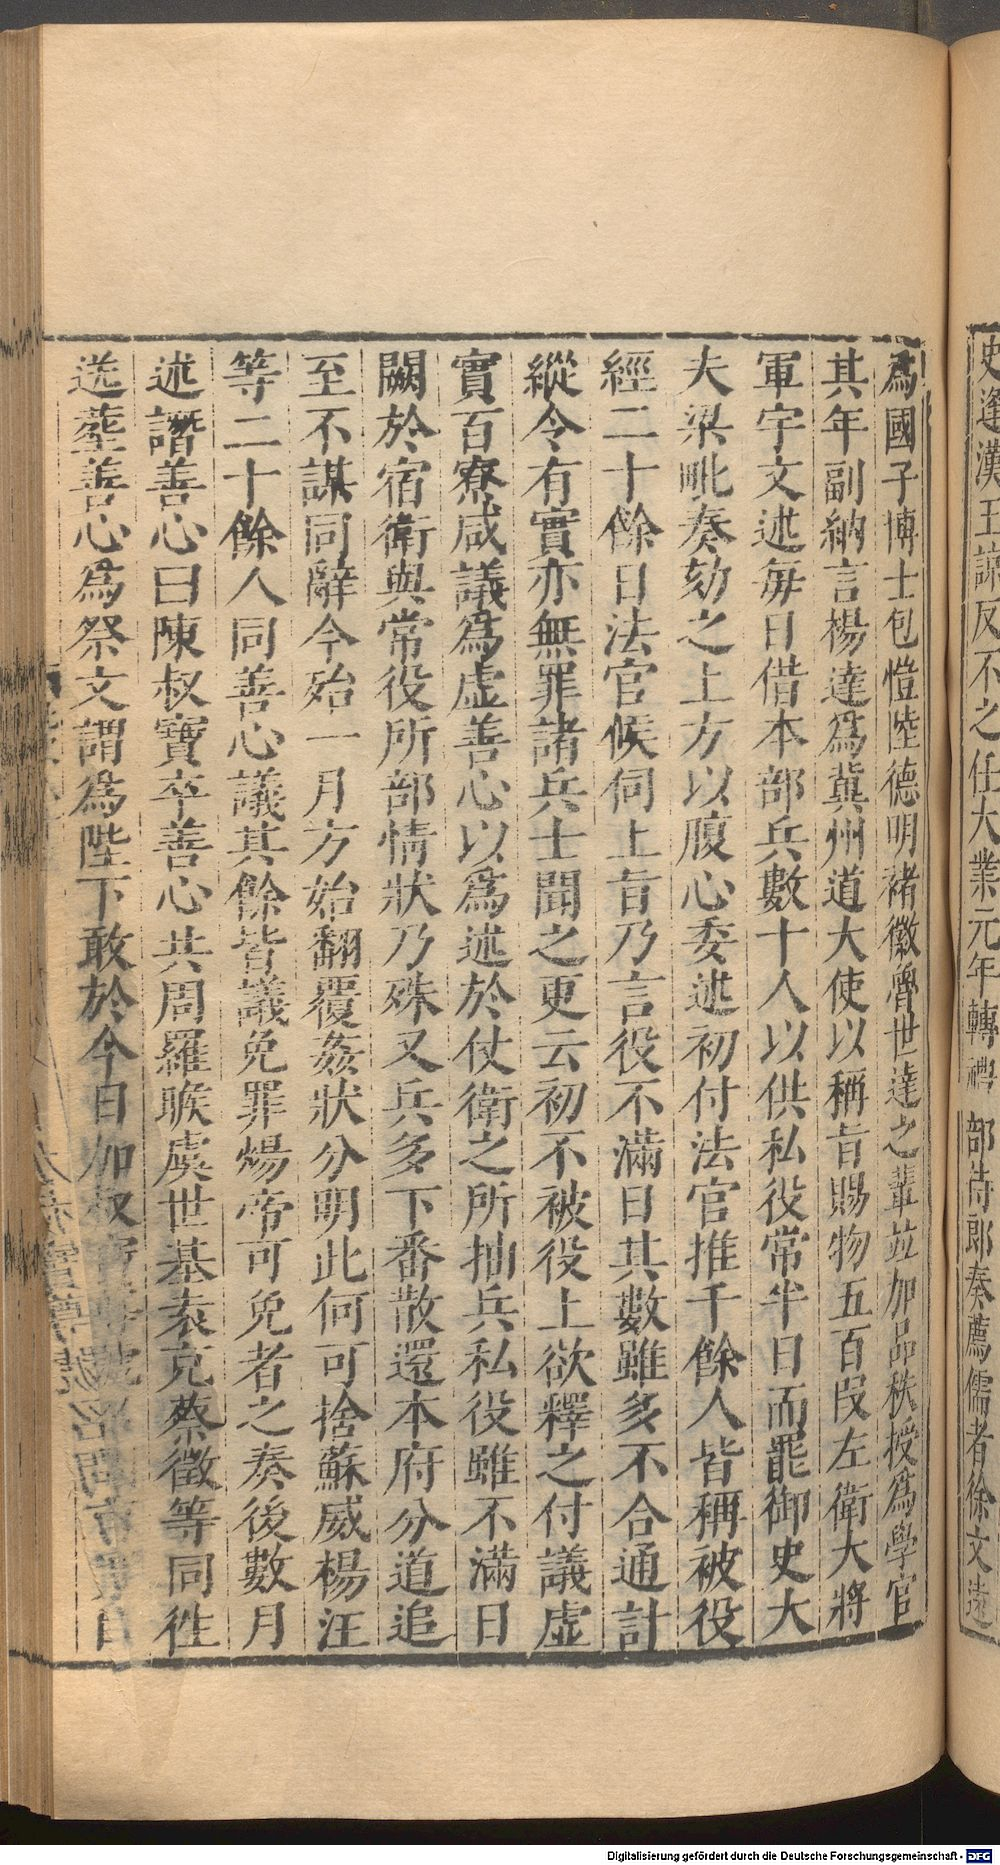 史逢漢王諒反不之任大業元年轉禮部侍郎奏薦儒者徐文遠
爲國子博士包愷陸德明褚徽魯世達之輩並加品秩授爲學官
其年副納言楊達爲冀州道大使以稱旨賜物五百段左衛大將
軍宇文述每日借本部兵數十人以供私役常半日而罷御史大
夫梁毗奏劾之上方以腹心委述初付法官推千餘人皆稱被役
經二十餘日法官候伺上旨乃言役不滿日其數雖多不合通計
縱令有實亦無罪諸兵士聞之更云初不被役上欲釋之付議虛
實百寮咸議爲虛善心以爲述於仗衛之所抽兵私役雖不滿日
闕於宿衛與常役所部情狀乃殊又兵多下番散還本府分道追
至不謀同辭今殆一月方始翻覆姦狀分明此何可捨蘇威楊汪
等二十餘人同善心議其餘皆議免罪煬帝可免者之奏後數月
述譖善心曰陳叔寶卒善心共周羅睺虞世基袁充蔡徵等同徃
送葬善心爲祭文謂爲陛下敢於今日加叔
Digitalisierung gefördert durch die Deutsche Forschungsgemeinschaft - DFG